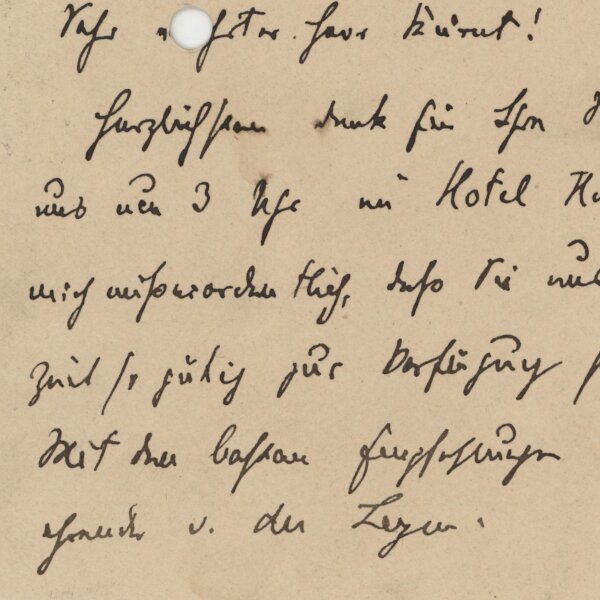 Sehr Herr Kürnt!
Herzlichsten Dank für Ihr
uns um 3 Uhr im Hotel
mich außerordentlich, daß Sie uns
Zeit so gütig zur Verfügung
Mit den besten Empfehlungen
v. der Leyen.